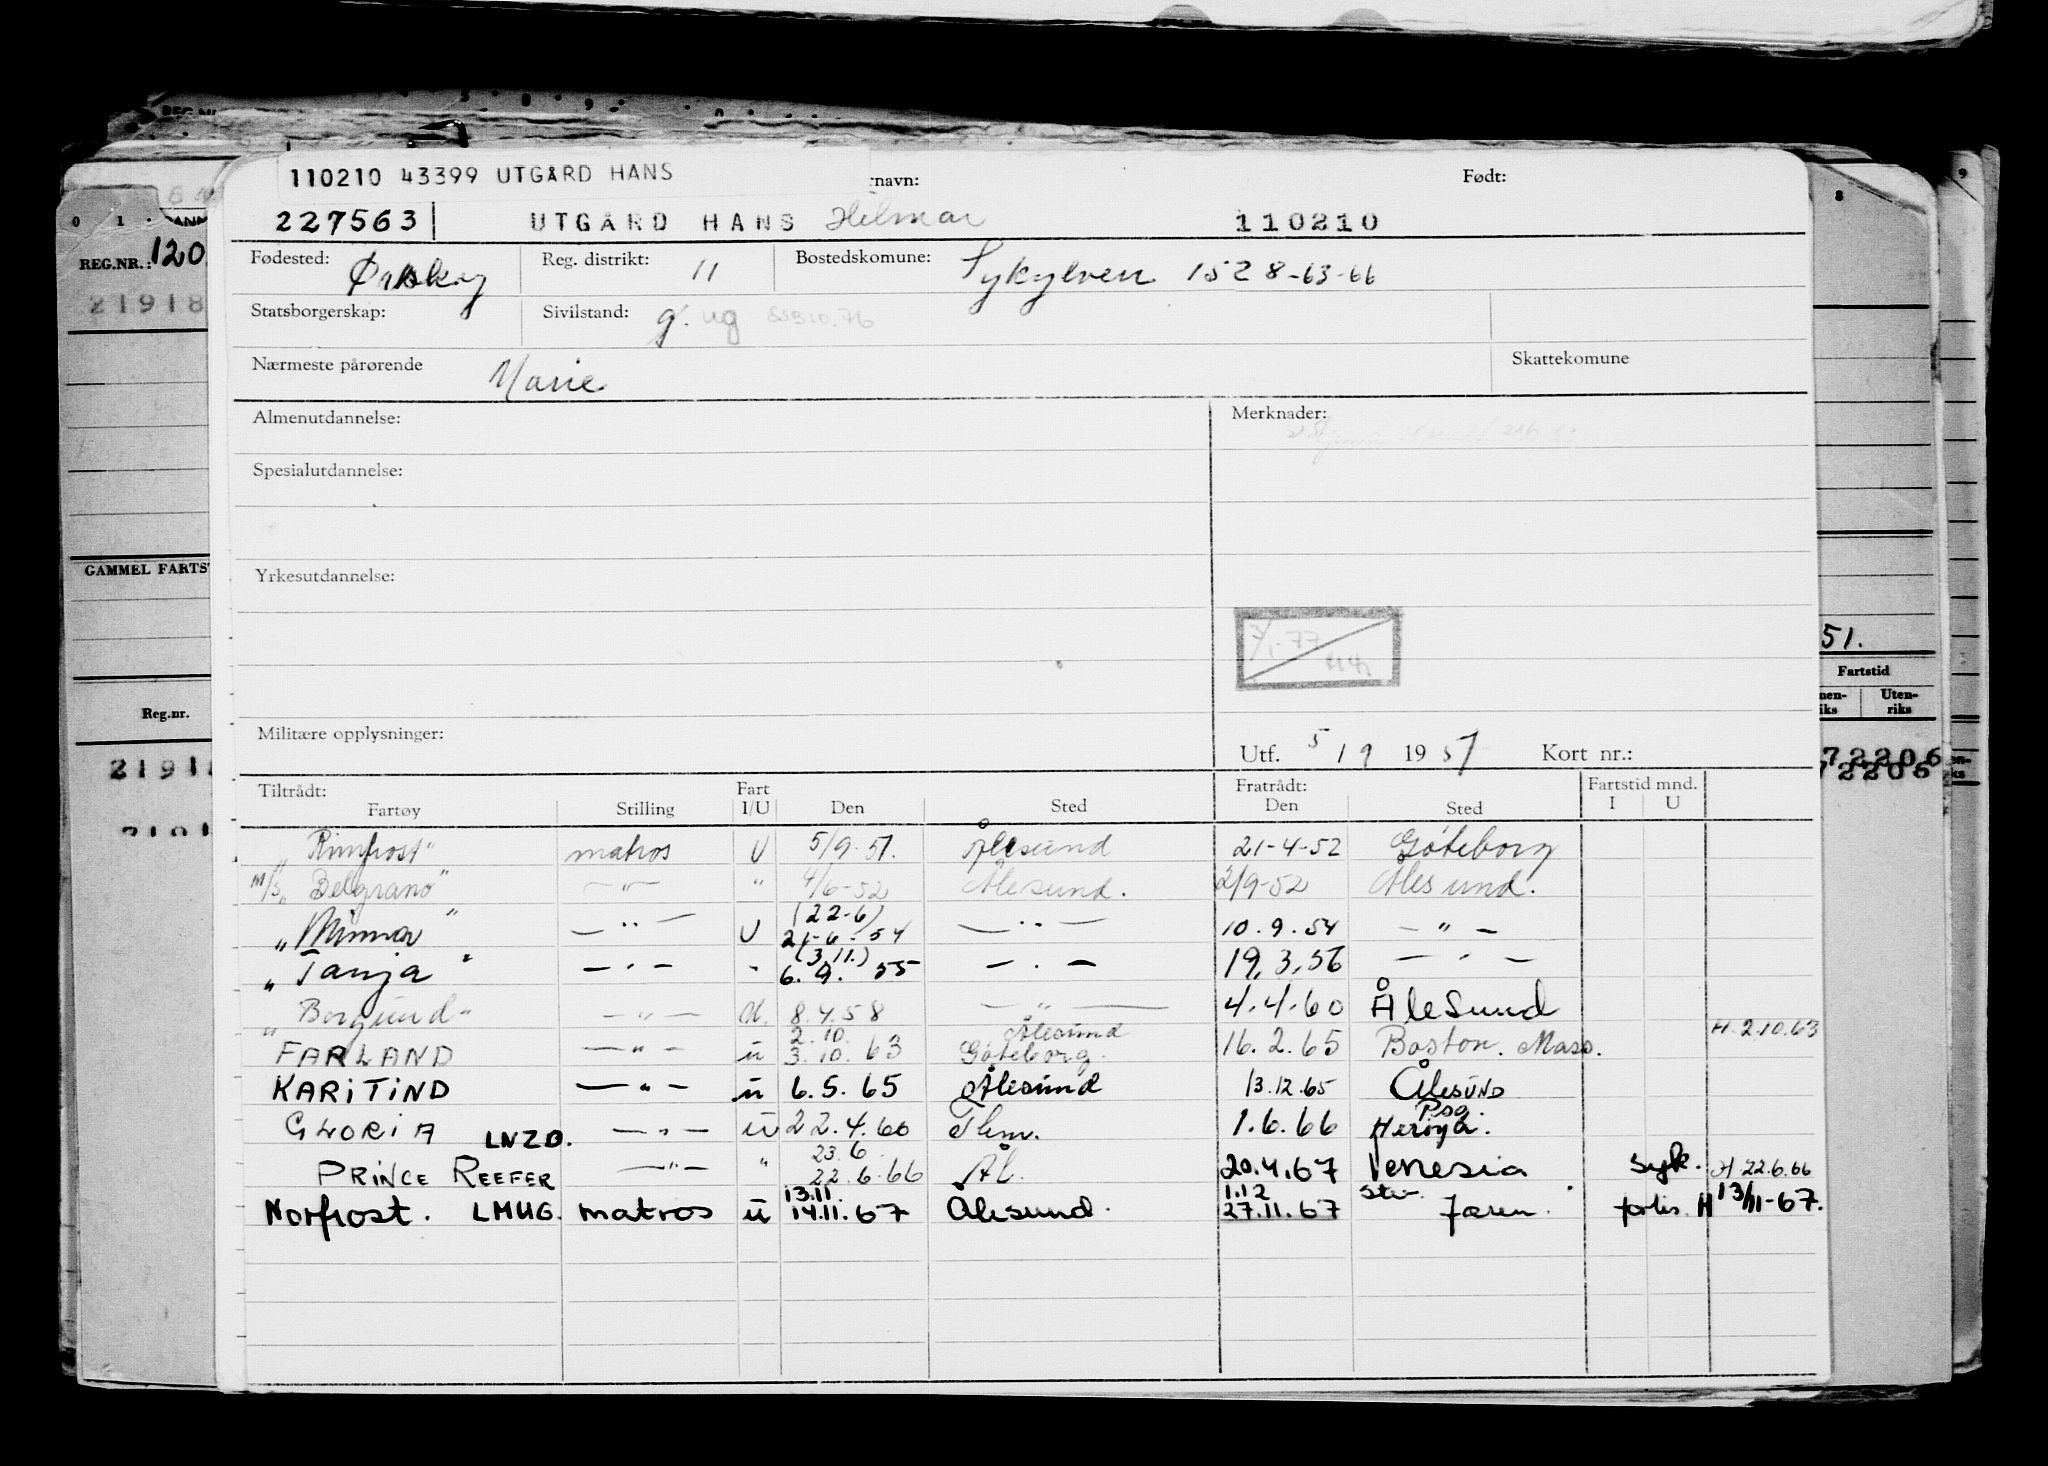 110210 43399 UTGÅRD HANS
rnavn: Født:
227563 UTGÅRD HANS Helmar 110210
Fødested: Ørsky Reg. distrikt: 11 Bostedskomune: Sykylven 1528-63-66
Statsborgerskap: Sivilstand: g. ug
Nærmeste pårørende Marie Skattekomune
Almenutdannelse: Merknader:
Spesialutdannelse:
Yrkesutdannelse:
7/1-77
Militære opplysninger: Utf. 5/9 1951 Kort nr.:
Tiltrådt: Fart Fratrådt: Fartstid mnd.
Fartøy Stilling I/U Den Sted Den Sted I U
"Rimfrost" matros U 5/9-51. Ålesund 21-4-52 Göteborg
M/S "Belgrano" —"— " 4/6-52 Ålesund. 2/9-52 Ålesund.
(22-6)
"Minna" —"— U 21-6-54 —"— 10.9.54 —"—
(3.11.)
"Tanja" —"— " 6.9.55 —"— 19.3.56 —"—
"Borgund" —"— U. 8.4.58 —"— 4.4.60 Ålesund
2.10. Ålesund H. 2.10.63
FARLAND —"— u 3.10.63 Göteborg. 16.2.65 Boston. Mass.
KARITIND —"— u 6.5.65 Ålesund 13.12.65 Ålesund
Psg.
GLORIA LNZB. —"— u 22.4.66 Thm. 1.6.66 Herøya.
23.6
PRINCE REEFER —"— " 22.6.66 Ål. 20.4.67 Venesia syk. H 22.6.66
13.11. 1.12
Norfrost. LMUG. matros u 14.11.67 Ålesund. 27.11.67 Jæren. forlis. H 13/11-67.
REG.NR.: 120
21918
GAMMEL FARTST
Reg.nr.
2191
51.
Fartstid
nen-
iks
Uten-
riks
72206
72206